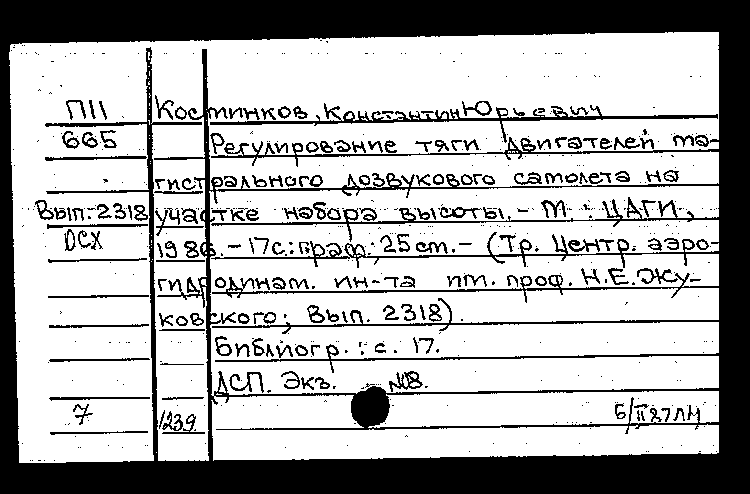 ПII Костинков, Константин Юрьевич
665 Регулирование тяги двигателей ма-
гистрального дозвукового самолета на
Вып. 2318 участке набора высоты. - М.: ЦАГИ,
ОСХ 1986. - 17с.: граф.; 25 см. - (Тр. Центр. аэро-
гидродинам. ин-та им. проф. Н.Е. Жу-
ковского; Вып. 2318).
Библиогр.: с. 17.
ДСП. Экз. №8.
7 1239